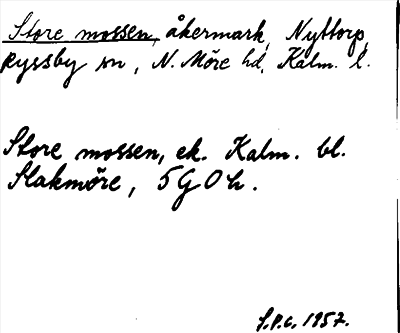 Store mossen, åkermark, Nyttorp,
Ryssby sn, N. Möre hd, Kalm. l.
Store mossen, ek. Kalm. bl.
Slakmöre, 5G0h.
S.P.C. 1957.